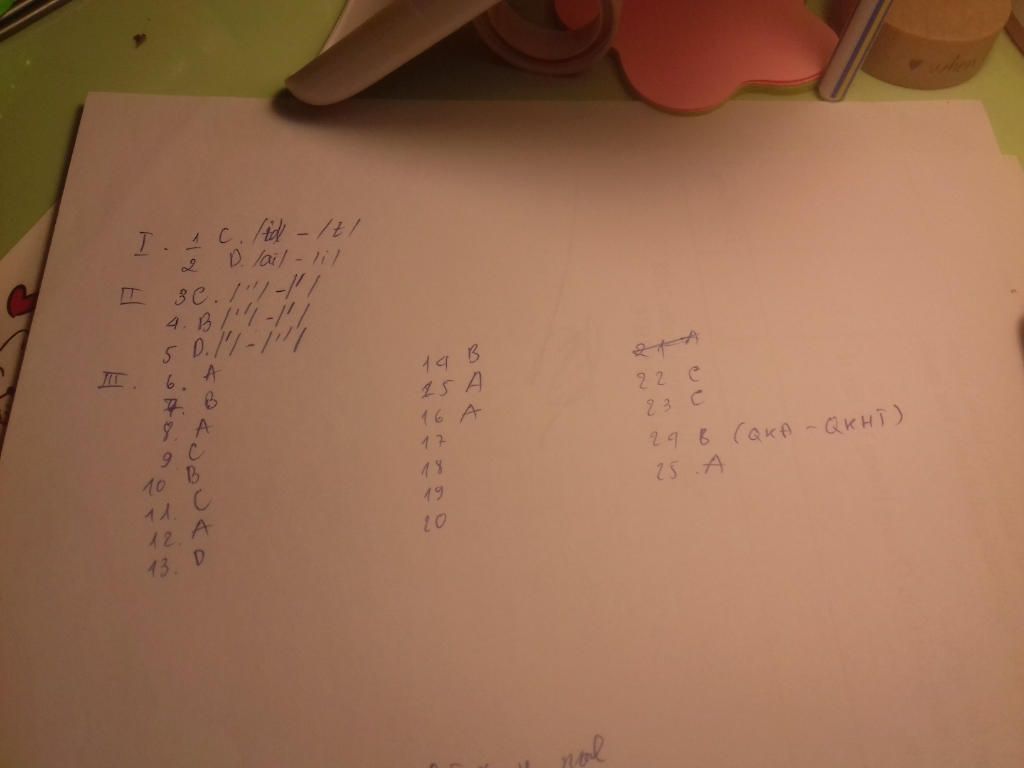 I. 1 C. /id/ - /t/
2 D. /ai/ - /i/
II 3 C. /''/ - /'/
4. B /''/ - /'/
5 D. /'/ - /''/
III. 6. A
7. B
8. A
9 C
10 B
11. C
12. A
13. D
14 B
15 A
16 A
17
18
19
20
21 A
22 C
23 C
24 B (QKĐ - QKHT)
25. A
when